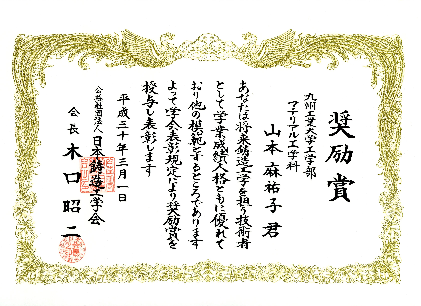 奨励賞
九州工業大学工学部
マテリアル工学科
山本麻祐子君
あなたは将来鋳造工学を担う技術者
として学業成績人格ともに優れて
おり他の模範とするところであります
よって学会表彰規定により奨励賞を
授与し表彰します
平成三十年三月一日
公益社団法人日本鋳造工学会
会長 木口昭二